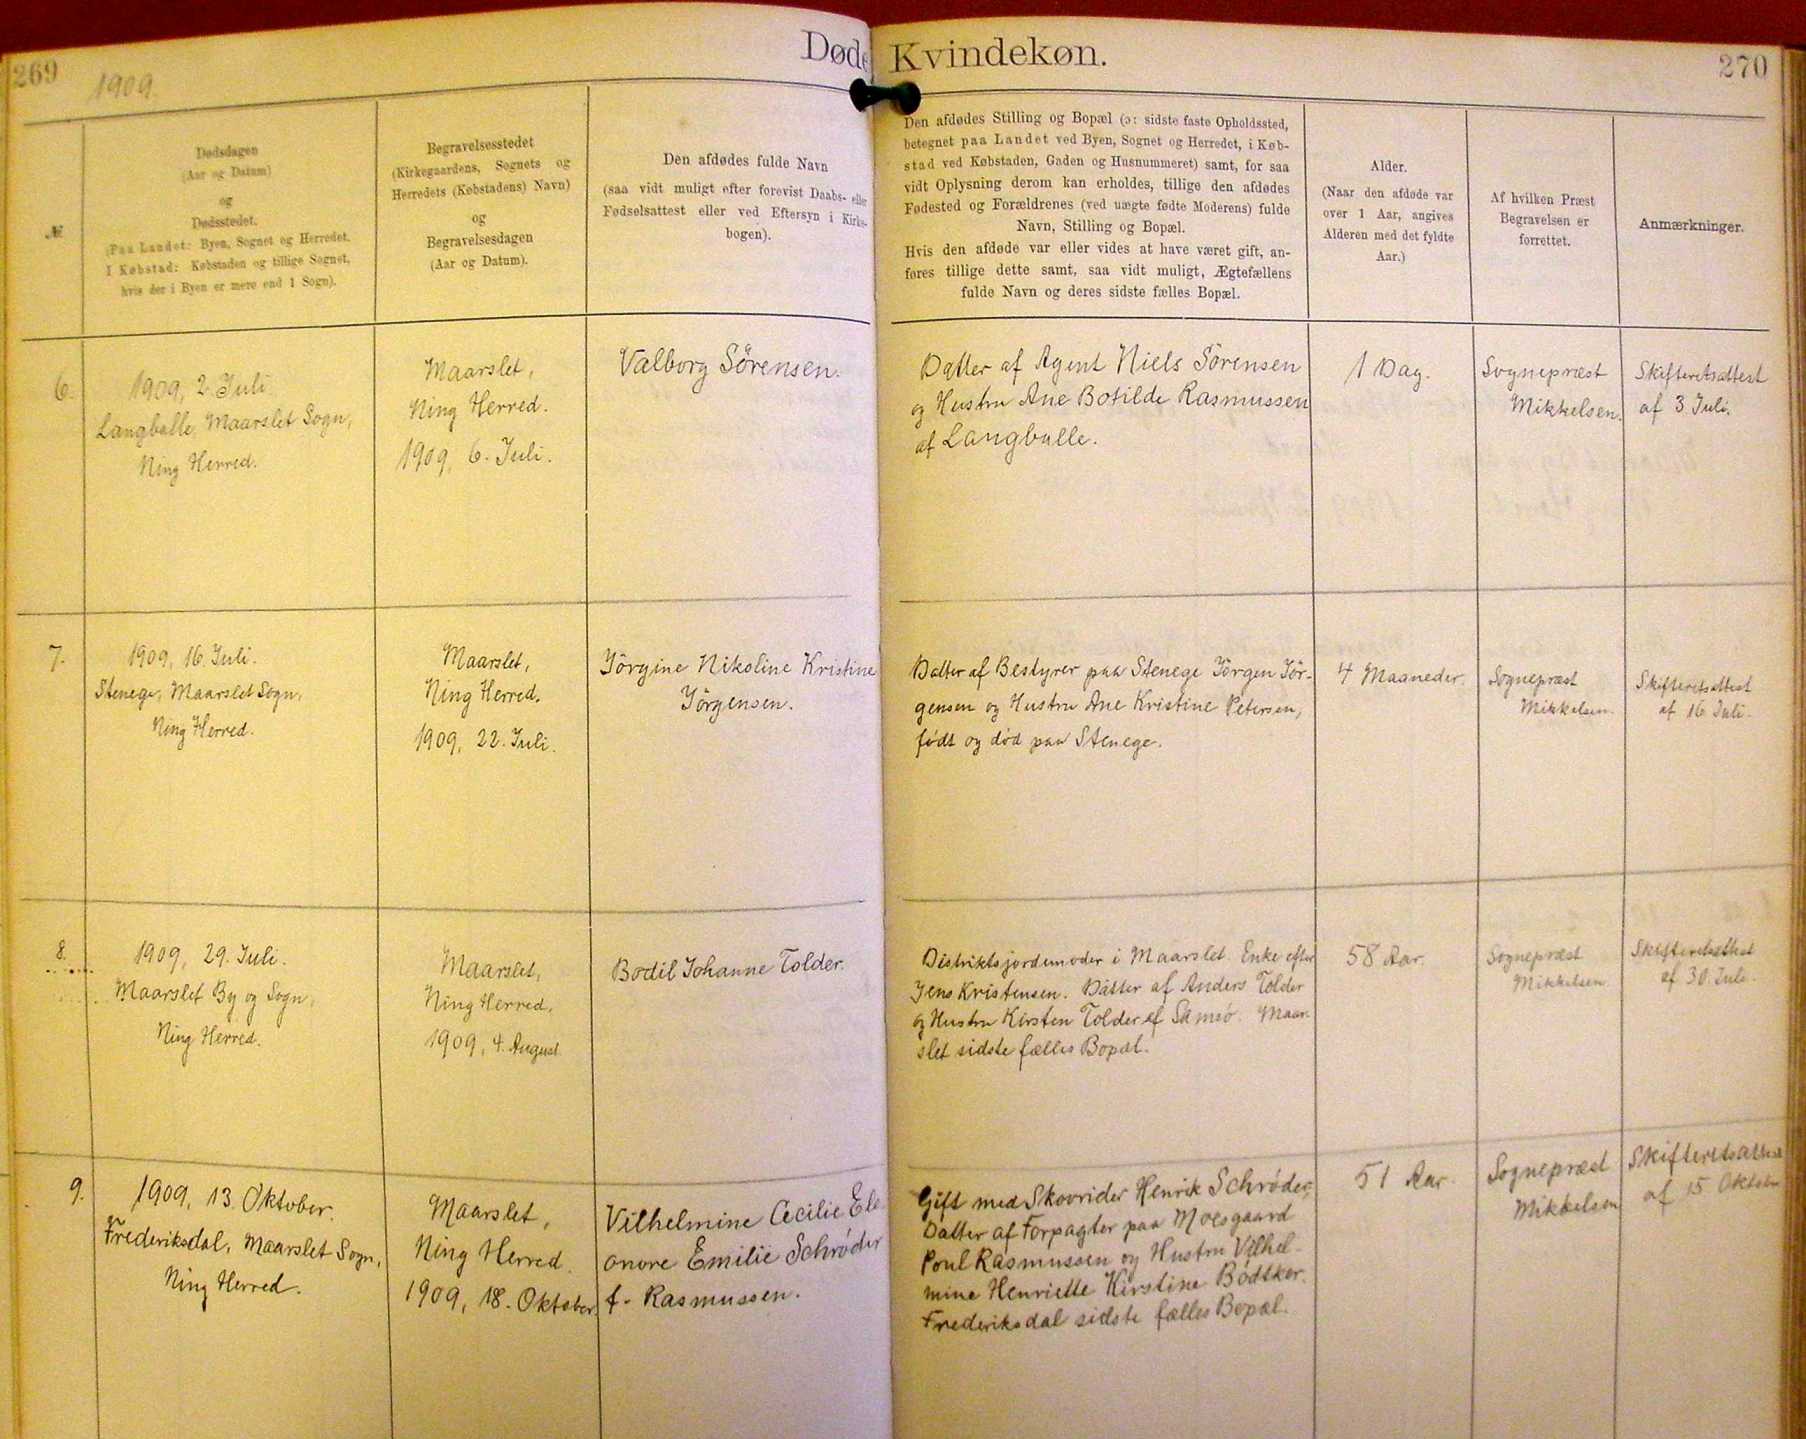 269
1909.
Døde Kvindekøn.
270
№
Dødsdagen
(Aar og Datum)
og
Dødsstedet.
(Paa Landet: Byen, Sognet og Herredet.
I Købstad: Købstaden og tillige Sognet,
hvis der i Byen er mere end 1 Sogn).
Begravelsesstedet
(Kirkegaardens, Sognets og
Herredets (Købstadens) Navn)
og
Begravelsesdagen
(Aar og Datum).
Den afdødes fulde Navn
(saa vidt muligt efter forevist Daabs- eller
Fødselsattest eller ved Eftersyn i Kirke-
bogen).
Den afdødes Stilling og Bopæl (ɔ: sidste faste Opholdssted,
betegnet paa Landet ved Byen, Sognet og Herredet, i Køb-
stad ved Købstaden, Gaden og Husnummeret) samt, for saa
vidt Oplysning derom kan erholdes, tillige den afdødes
Fødested og Forældrenes (ved uægte fødte Moderens) fulde
Navn, Stilling og Bopæl.
Hvis den afdøde var eller vides at have været gift, an-
føres tillige dette samt, saa vidt muligt, Ægtefællens
fulde Navn og deres sidste fælles Bopæl.
Alder.
(Naar den afdøde var
over 1 Aar, angives
Alderen med det fyldte
Aar.)
Af hvilken Præst
Begravelsen er
forrettet.
Anmærkninger.
6.
1909, 2. Juli
Langballe, Maarslet Sogn,
Ning Herred.
Maarslet,
Ning Herred.
1909, 6. Juli.
Valborg Sörensen.
Datter af Agent Niels Sörensen
og Hustru Ane Botilde Rasmussen
af Langballe.
1 Dag.
Sognepræst
Mikkelsen.
Skifteretsattest
af 3. Juli.
7.
1909, 16. Juli.
Stenege, Maarslet Sogn,
Ning Herred.
Maarslet,
Ning Herred.
1909, 22. Juli.
Jörgine Nikoline Kristine
Jörgensen.
Datter af Bestyrer paa Stenege Jörgen Jör-
gensen og Hustru Ane Kristine Petersen,
født og död paa Stenege.
4 Maaneder.
Sognepræst
Mikkelsen.
Skifteretsattest
af 16. Juli.
8.
1909, 29. Juli.
Maarslet By og Sogn,
Ning Herred.
Maarslet,
Ning Herred.
1909, 4. August.
Bodil Johanne Tolder.
Distriktsjordemoder i Maarslet. Enke efter
Jens Kristensen. Datter af Anders Tolder
og Hustru Kirsten Tolder af Samsö. Maar-
slet sidste fælles Bopæl.
58 Aar.
Sognepræst
Mikkelsen.
Skifteretsattest
af 30. Juli.
9.
1909, 13. Oktober.
Frederiksdal, Maarslet Sogn,
Ning Herred.
Maarslet,
Ning Herred.
1909, 18. Oktober.
Vilhelmine Cecilie Ele-
onore Emilie Schrøder
f. Rasmussen.
Gift med Skovrider Henrik Schrøder,
Datter af Forpagter paa Moesgaard
Poul Rasmussen og Hustru Vilhel-
mine Henriette Kirstine Bødtker.
Frederiksdal sidste fælles Bopæl.
51 Aar.
Sognepræst
Mikkelsen
Skifteretsattest
af 15 Oktober